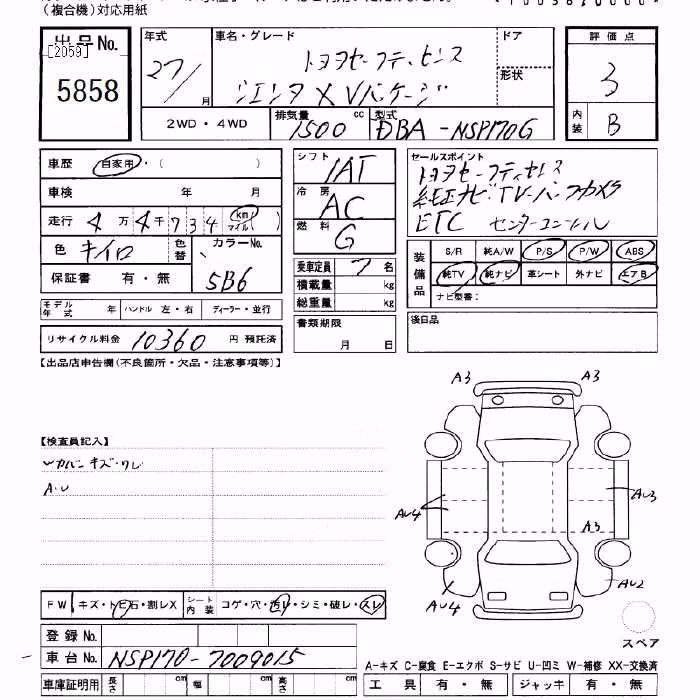 (複合機)対応用紙
出品No.
[2059]
5858
年式 27/ 月
車名・グレード トヨタセーフティセンス
シエンタ X Vパッケージ
ドア
形状
評価点
3
内装 B
2WD・4WD
排気量 1500 cc
型式 DBA-NSP170G
車歴 自家用・( )
車検 年 月
走行 4万4千734 km マイル( )
色 キイロ 色替 カラーNo. 5B6
保証書 有・無
モデル年式 年 ハンドル 左・右 ディーラー・並行
リサイクル料金 10360 円 預託済
シフト IAT
冷房 AC
燃料 G
乗車定員 7 名
積載量 kg
総重量 kg
書類期限
月 日
セールスポイント
トヨタセーフティセンス
純正ナビ・TV・バックカメラ
ETC
装備品
S/R 純A/W P/S P/W ABS
純TV 純ナビ 革シート 外ナビ エアB
ナビ型番:
後日品
【出品店申告欄(不良箇所・欠品・注意事項等)】
【検査員記入】
カバー キズ・ワレ
A・U
A3 A3
AU4 AU3
A3
AU4 AU2
スペア
FW キズ・トビ石・割レX シート内装 コゲ・穴・汚レ・シミ・破レ・スレ
登録No.
車台No. NSP170-7009015
車庫証明用 長さ cm 幅 cm 高さ cm
A-キズ C-腐食 E-エクボ S-サビ U-凹ミ W-補修 XX-交換済
工具 有・無 ジャッキ 有・無